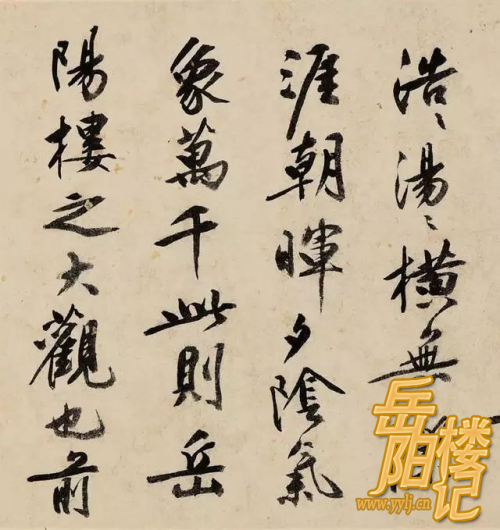 浩〻湯〻橫無
涯朝暉夕陰氣
象萬千此則岳
陽樓之大觀也前
岳阳楼记
www.yylj.cn